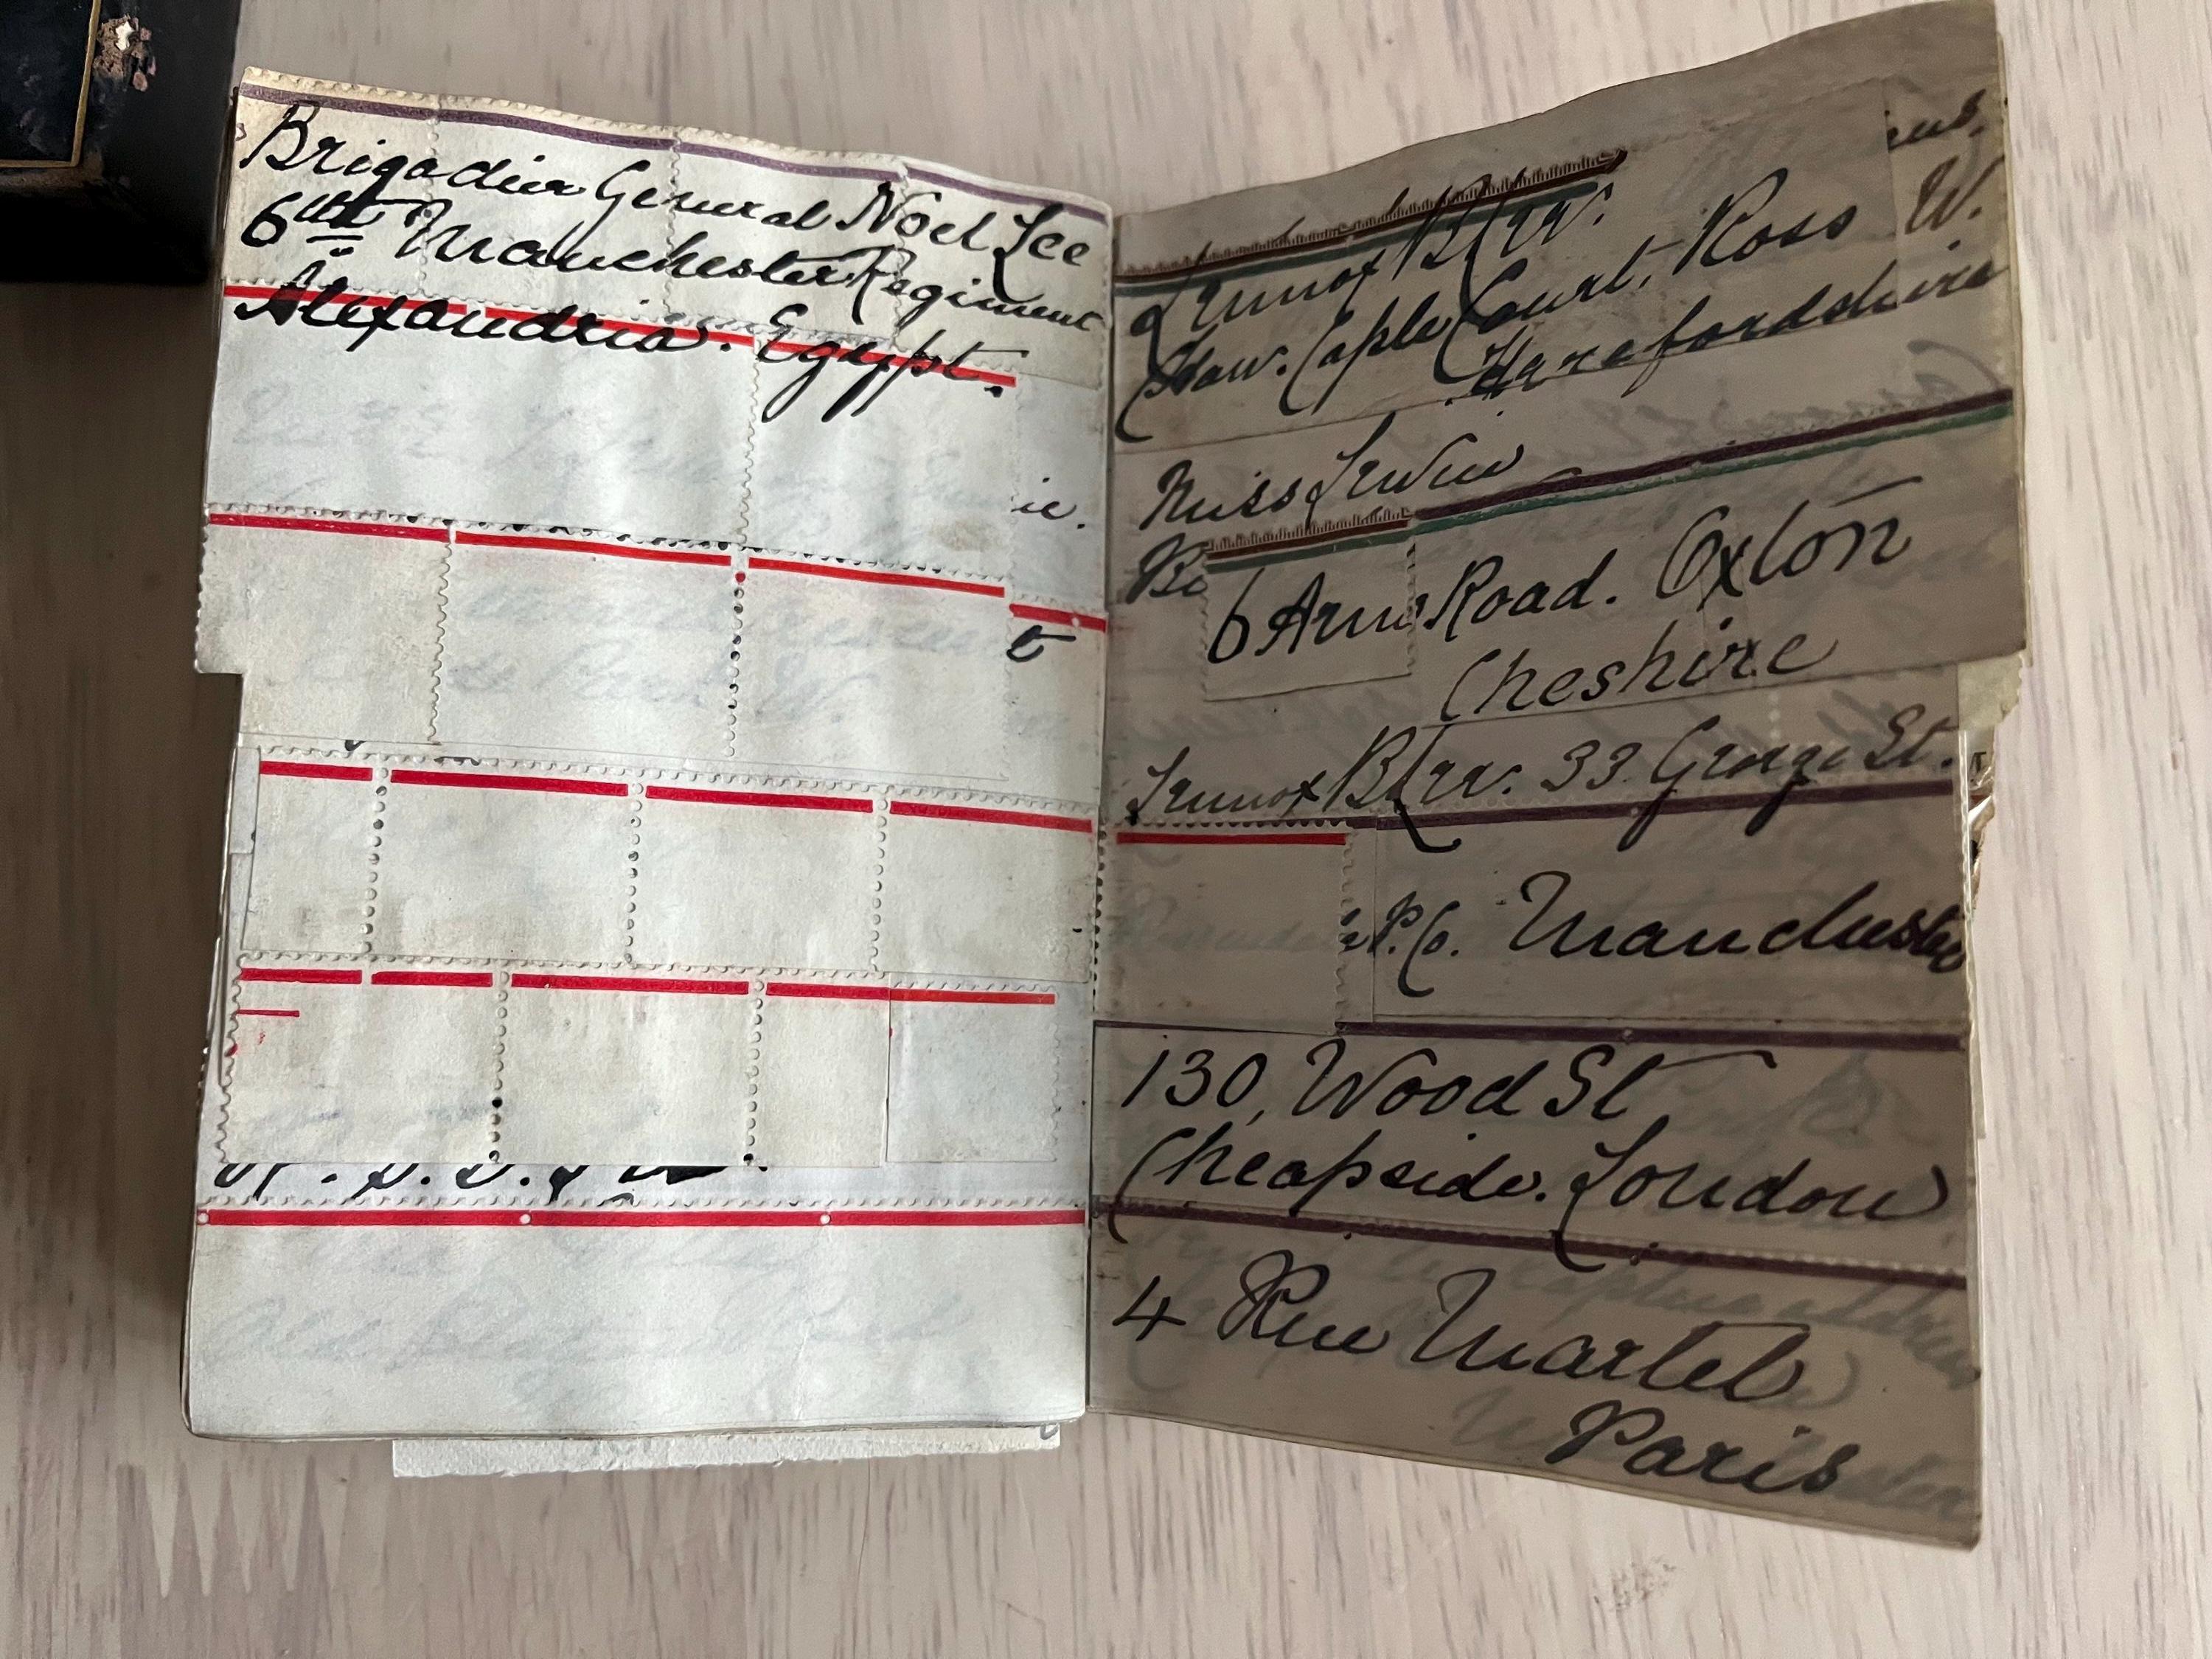 Brigadier General Noel Lee
6th Manchester Regiment
Alexandria. Egypt.
ie.
t
Lennox B. Lee.
How. Caple Court. Ross W.
Herefordshire
Miss Irwin
6 Arno Road. Oxton
Cheshire
Lennox B. Lee. 33. George St.
P. Co. Manchester
130, Wood St
Cheapside. London
4 Rue Martel
Paris